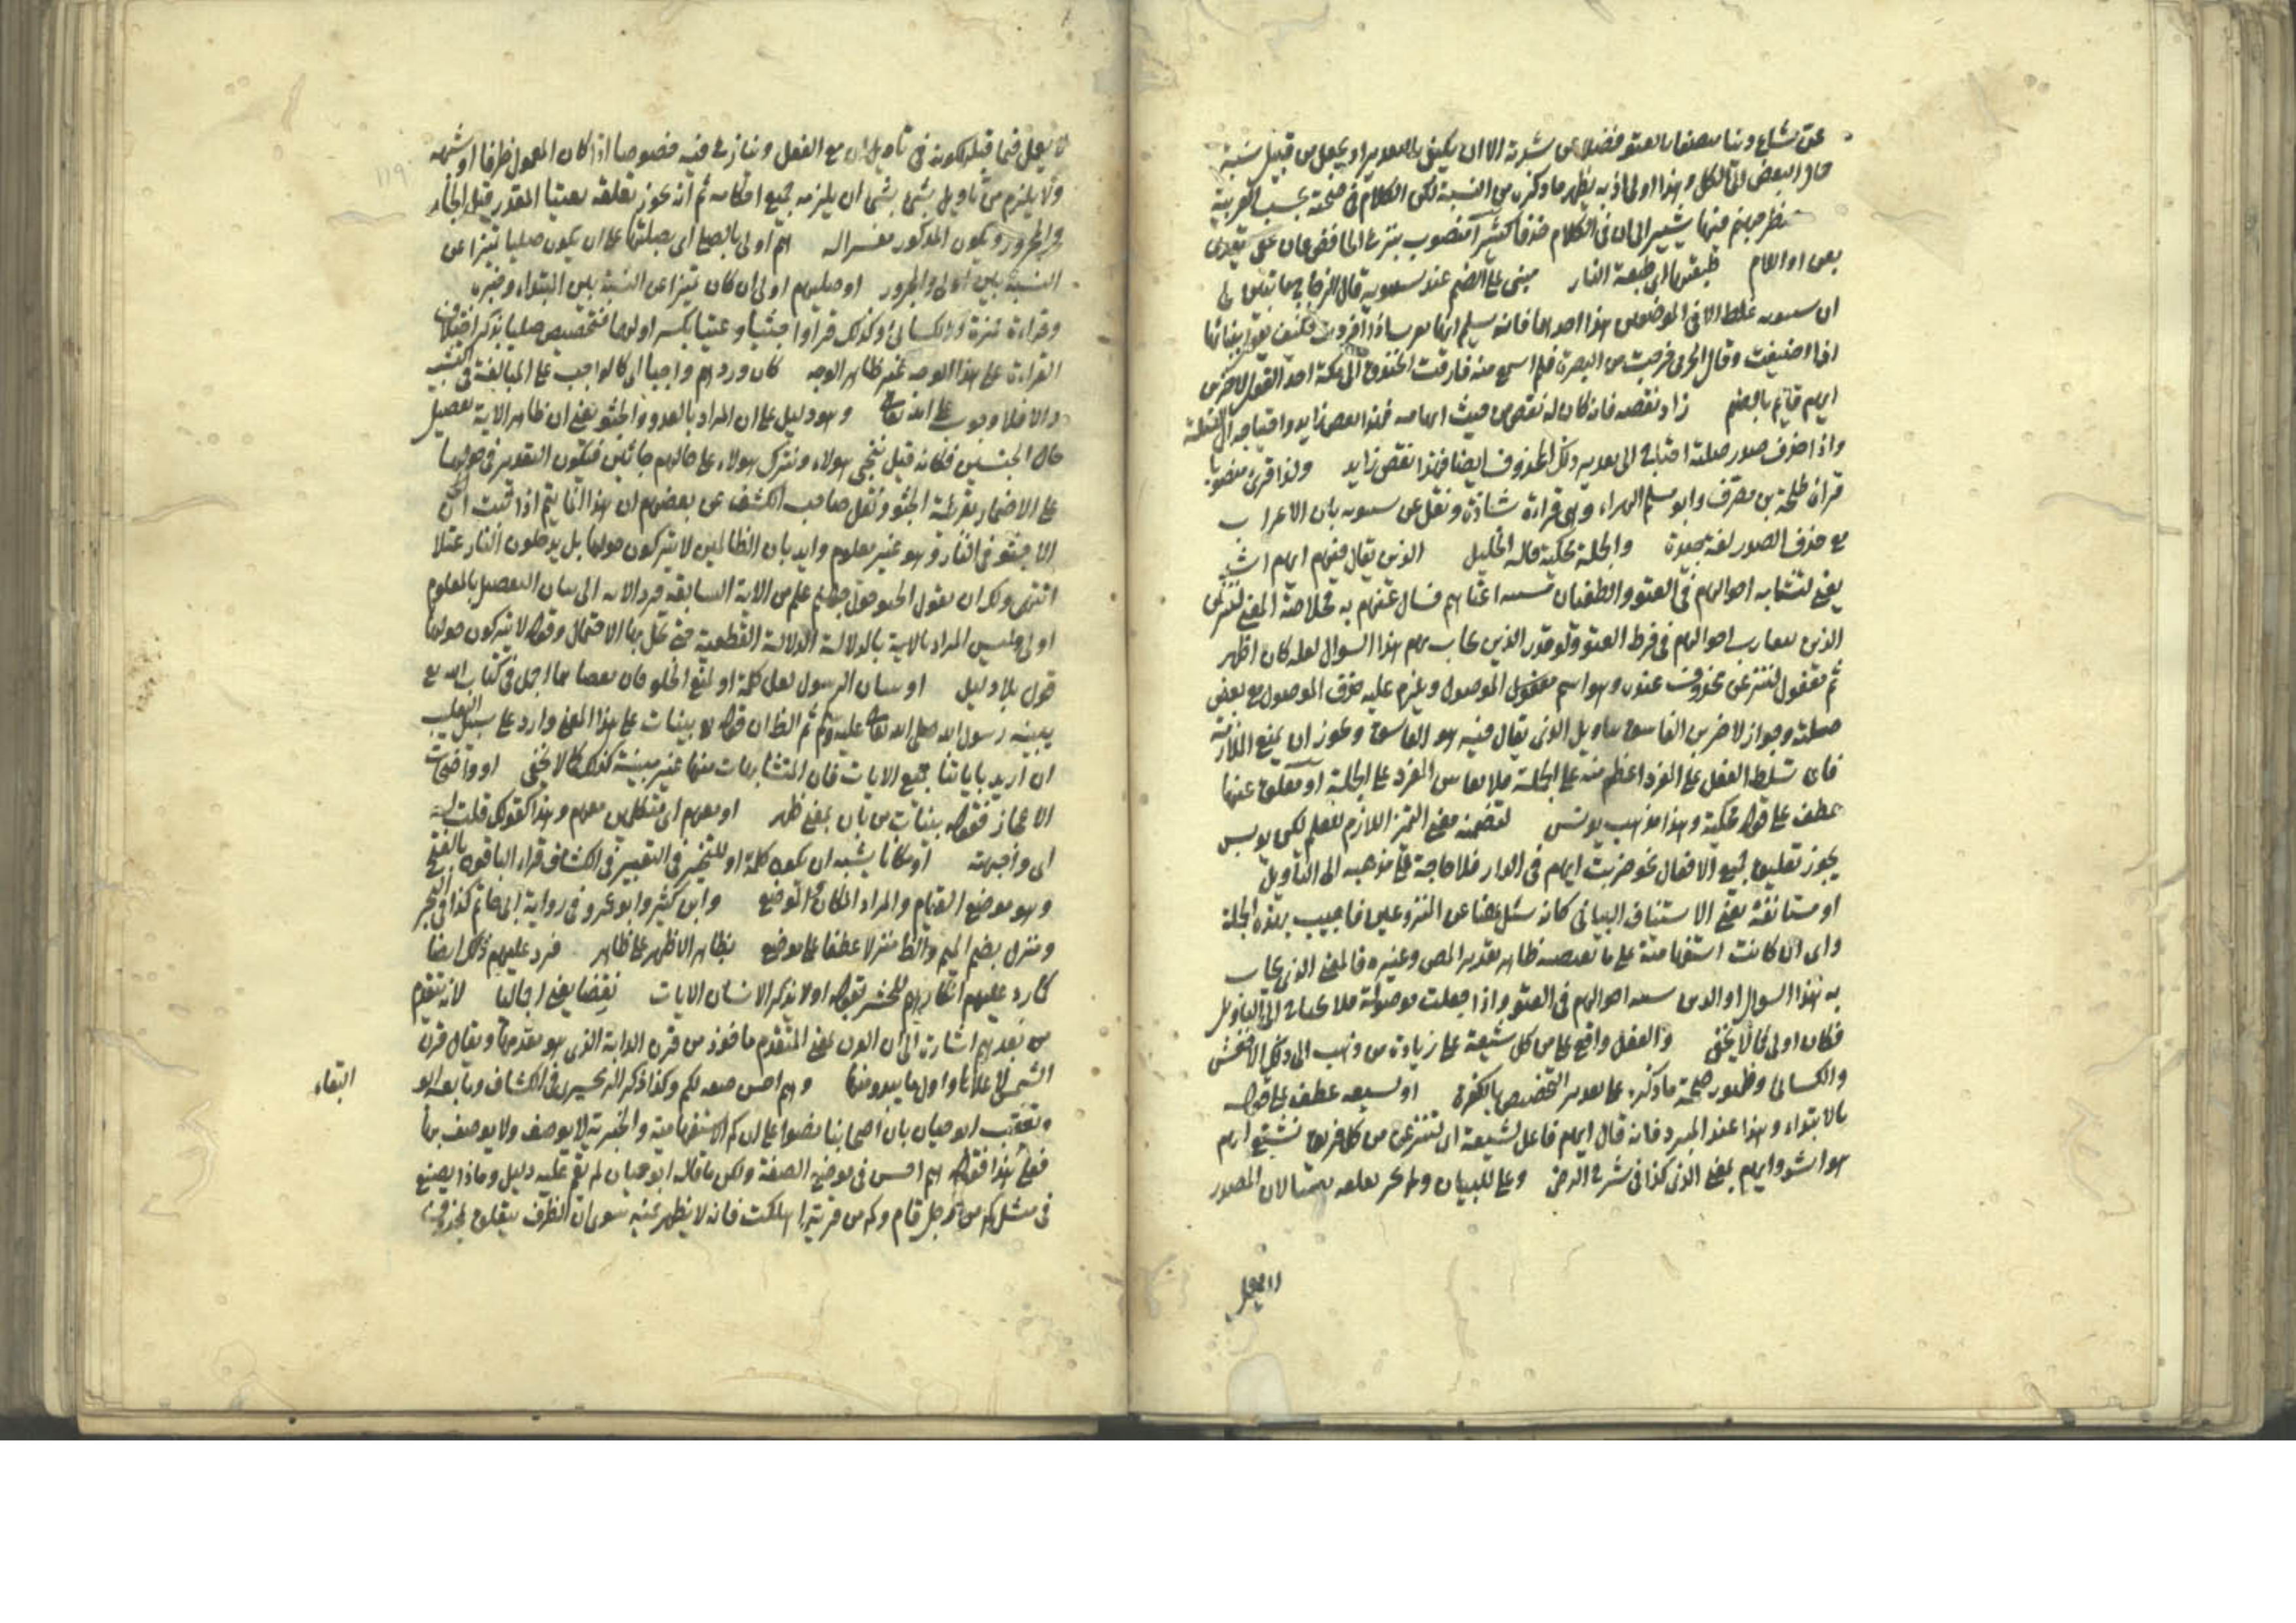 عن شاع وبنا بالعتو فضلا عن شدته الا ان يكتفى بالتقدير او يجعل من قبيل نسبة
حال البعض الى الكل وهذا اولى اذ به يظهر ما ذكره من النسبة لكن الكلام في صحته بحسب العربية
منهم فيها يشير الى ان في الكلام حذفا كثيرا منصوب بنزع الخافض فان عتى تعدى
بعن او اللام طبقتها اى طبقة النار مبنى على الضم عند سيبويه قال الزجاج ما تبين لى
ان سيبويه غلط الا في الموضعين هذا احدهما فانه يسلم انها معربة اذا افردت فكيف يقول ببنائها
اذا اضيفت وقال الجرمى خرجت من البصرة فلم اسمع منذ فارقت الخندق الى مكة احدا يقول لاضربن
ايهم قائم بالضم زاد نقصه فانه كان له نقص من حيث ابهامه فهذا نقص زايد واحتياجه الى الصلة
واذا حذف صدر صلته احتاج الى تقدير ذلك المحذوف ايضا فهذا نقص زايد ولذا قرئ منصوبا
قرأه طلحة بن مصرف وابو مسلم الهراء وهى قراءة شاذة ونقل عن سيبويه بان الاعراب
مع حذف الصدر لغة جيدة والجملة محكية قاله الخليل الذين يقال فيهم ايهم اشد
يعنى لتشابه احوالهم في العتو والطغيان اعتاهم فسال عنهم به فخلاصة المعنى لننزعن
الذين تقارب احوالهم في فرط العتو ولو قدر الذين يجاب بهم هذا السوال لعله كان اظهر
ثم مفعول لننزعن محذوف عنده وهو اسم الموصول ويلزم عليه حذف الموصول مع بعض
صلته وجواز لاضربن الفاسق بتاويل الذى يقال فيه هو الفاسق ويجوز ان يمنع الملازمة
فان تسلط الفعل على المفرد اعظم منه على الجملة فلا يقاس المفرد على الجملة او معلق عنها
عطف على قوله محكية وهذا مذهب يونس لتضمنه معنى التمييز اللازم للعلم لكن يونس
يجوز تعليق جميع الافعال نحو ضربت ايهم في الدار فلا حاجة على مذهبه الى التاويل
او مستانفة يعنى الاستيناف البيانى كانه سئل عن المنزوعين فاجيب بهذه الجملة
واى ان كانت استفهامية على ما ظاهر تقدير المص وغيره فالمعنى الذى يجاب
به هذا السوال او الذين احوالهم في العتو واذا جعلت موصولة فلا يحتاج الى التاويل
فكان اولى كما لا يخفى والفعل واقع على من كل شيعة على زيادة من ذهب الى ذلك الاخفش
والكسائى وظهور صحة ما ذكره على تقدير التخصيص بالكفرة او لشيعة عطف على قوله
بالابتداء وهذا عند المبرد فانه قال ايهم فاعل لشيعة اى لننزعن من كل فريق تشيع ايهم
هو اشد وايهم بمعنى الذى كذا في شرح الرضى وعلى للبيان بعتيا لان المصدر
لا يعمل
لا يعمل فيما قبله لكونه في تاويل ان مع الفعل وننازع فيه خصوصا اذا كان المعمول ظرفا او شبهه
ولا يلزم من تاويل شئ بشئ ان يلزمه جميع احكامه ثم انه يجوز تعلقه بعتيا المقدر قبل الجار
والمجرور ويكون المذكور مفسرا له هم اولى بالصلى اى بصليها على ان يكون صليا تمييزا عن
النسبة بين اولى والمجرور او صليهم اولى ان كان تمييزا عن النسبة بين المبتداء وخبره
وقراءة حمزة والكسائى وكذلك قراوا جثيا وعتيا بكسر اولهما فتخصيص صليا بذكر اختلاف
القراءة على هذا الوجه غير ظاهر الوجه كان ورودهم واجبا اى كالواجب على المبالغة في التشبيه
والا فلا وجوب على الله تعالى وهو دليل على ان المراد بالورود الجثو يعنى ان ظاهر الآية تفصيل
حال الجنسين فكانه قيل ننجى هولاء ونترك هولاء على حالهم جاثين فيكون التقدير في حواليها
على الاضمار بقرينة الجثو ونقل صاحب الكشف عن بعضهم ان هذا انما يتم اذا ثبت ان
لا جثو في النار وهو غير معلوم وايد بان الظالمين لا يتركون حولها بل يدخلون النار عتلا
انتهى ولك ان تقول الجثو حول جهنم علم من الآية السابقة فرد الآية الى بيان التفصيل بالمعلوم
اولى وليس المراد بالآية بالدلالة الدلالة القطعية حتى تخل بها الاحتمال وقوله لا يتركون حولها
قول بلا دليل او ببيان الرسول لعل كلمة او لمنع الخلو فان بعضا مما اجمل في كتاب الله مع
يبينه رسول الله صلى الله تعالى عليه وسلم ثم الظ ان قوله بينات على هذا المعنى وارد على سبيل التغليب
ان اريد باياتنا جميع الايات فان المتشابهات منها غير مبينة كذلك كما لا يخفى او واضحات
الاعجاز فقوله بينات من بان بمعنى ظهر او معهم اى متكلمين معهم وهذا كقولك قلت له
اى واجهته او مكانا يشبه ان يكون كلمة او للتخيير في التعبير في الكشاف قراء الباقون بالفتح
وهو موضع القيام والمراد المكان والموضع وابن كثير وابو عمرو في رواية ابى حاتم كذا في البحر
ومنزل بضم الميم والظ منزلا عطفا على موضع بظاهر الاظهر على ظاهر فرد عليهم ذلك ايضا
كما رد عليهم انكارهم للحشر بقوله اولا يذكر الانسان الآيات نقضا يعنى اجماليا لانه يتقدم
من بعدهم اشارة الى ان القرن بمعنى المتقدم ماخوذ من قرن الدابة الذى هو مقدمها ويقال قرن
الشمس لاعلاها واول ما يبدو منها وهم احسن صفة لكم وكذا ذكر الزمخشرى في الكشاف وتابعه ابو
البقاء
وتعقب ابو حيان بان اصحابنا نصوا على ان كم الاستفهامية والخبرية لا يوصف ولا يوصف بها
فعلى هذا فقوله هم احسن في موضع الصفة ولكن ما قاله ابو حيان لم يقم عليه دليل وماذا يصنع
في مثل كم من رجل قام وكم من قرية اهلكت فانه لا يظهر غيه سوى ان الظرف يتعلق بمحذوف